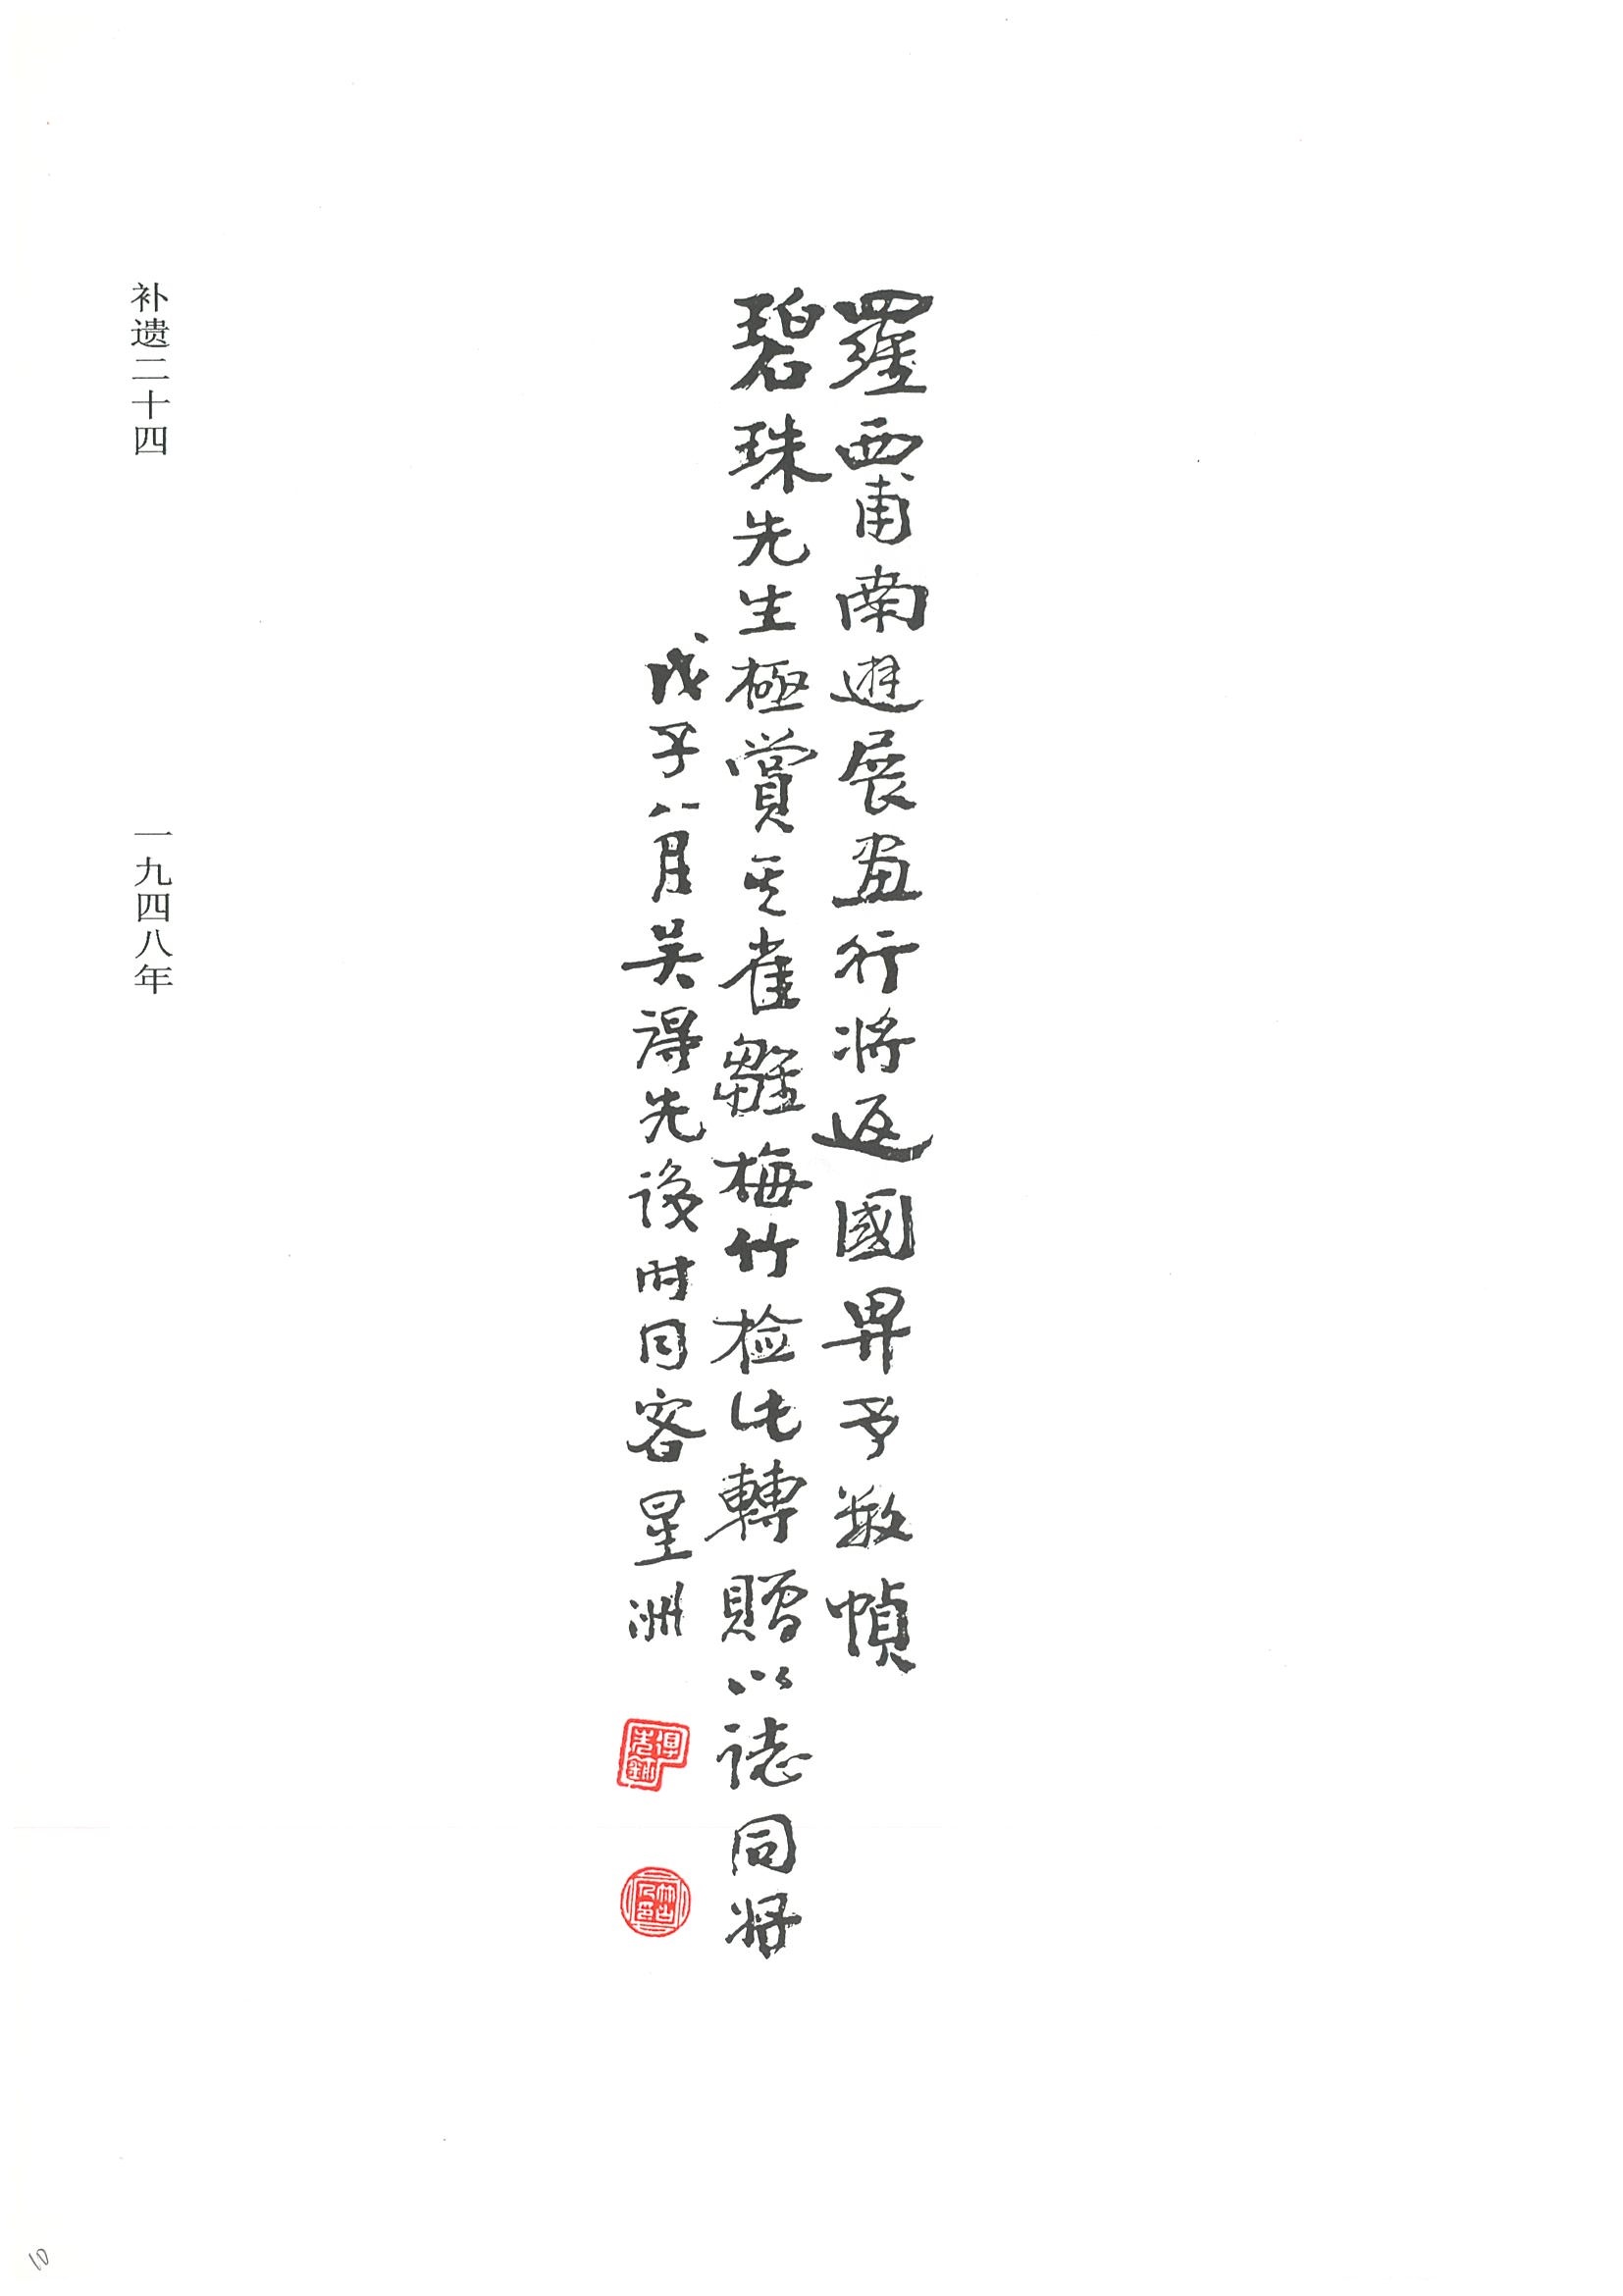 羅西甫南遊展画行将返國畀予数幀
碧珠先生極賞其雀雛梅竹检此轉贈以誌同好
戊子八月吴得先後时同客星洲
补遗二十四
一九四八年
10